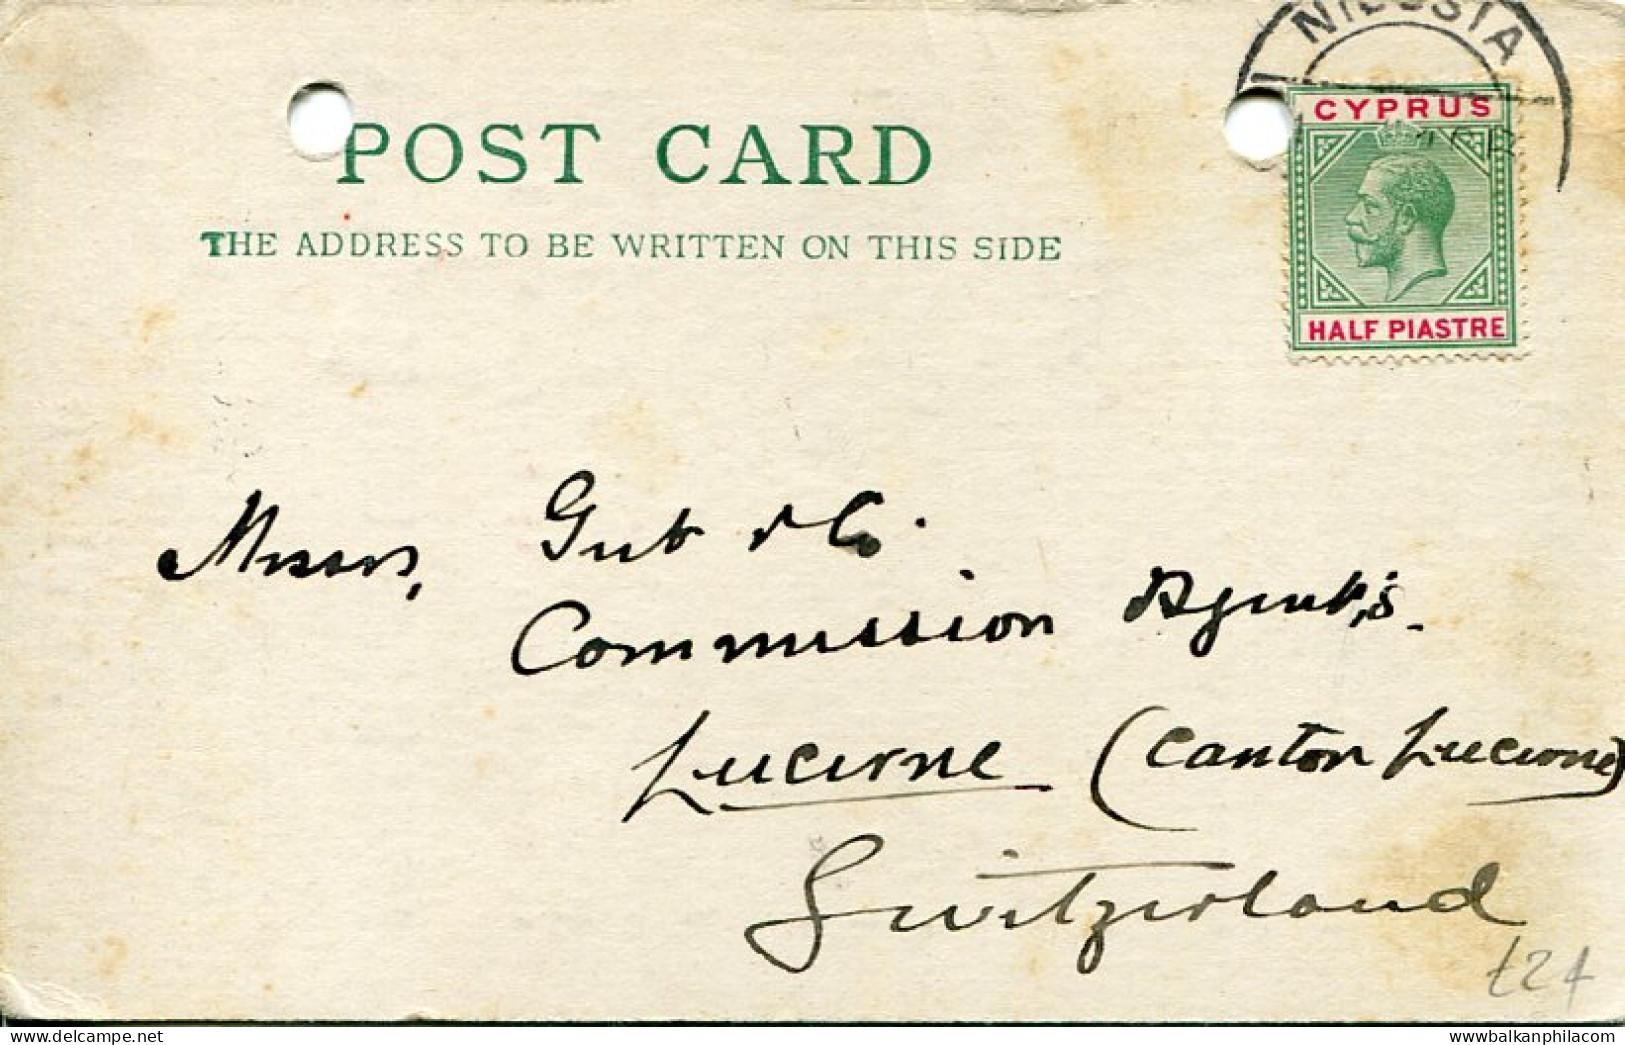 NICOSIA
CYPRUS
HALF PIASTRE
POST CARD
THE ADDRESS TO BE WRITTEN ON THIS SIDE
Messrs, Gut & Co.
Commission Agents.
Lucerne (Canton Lucerne)
Switzerland
www.balkanphila.com